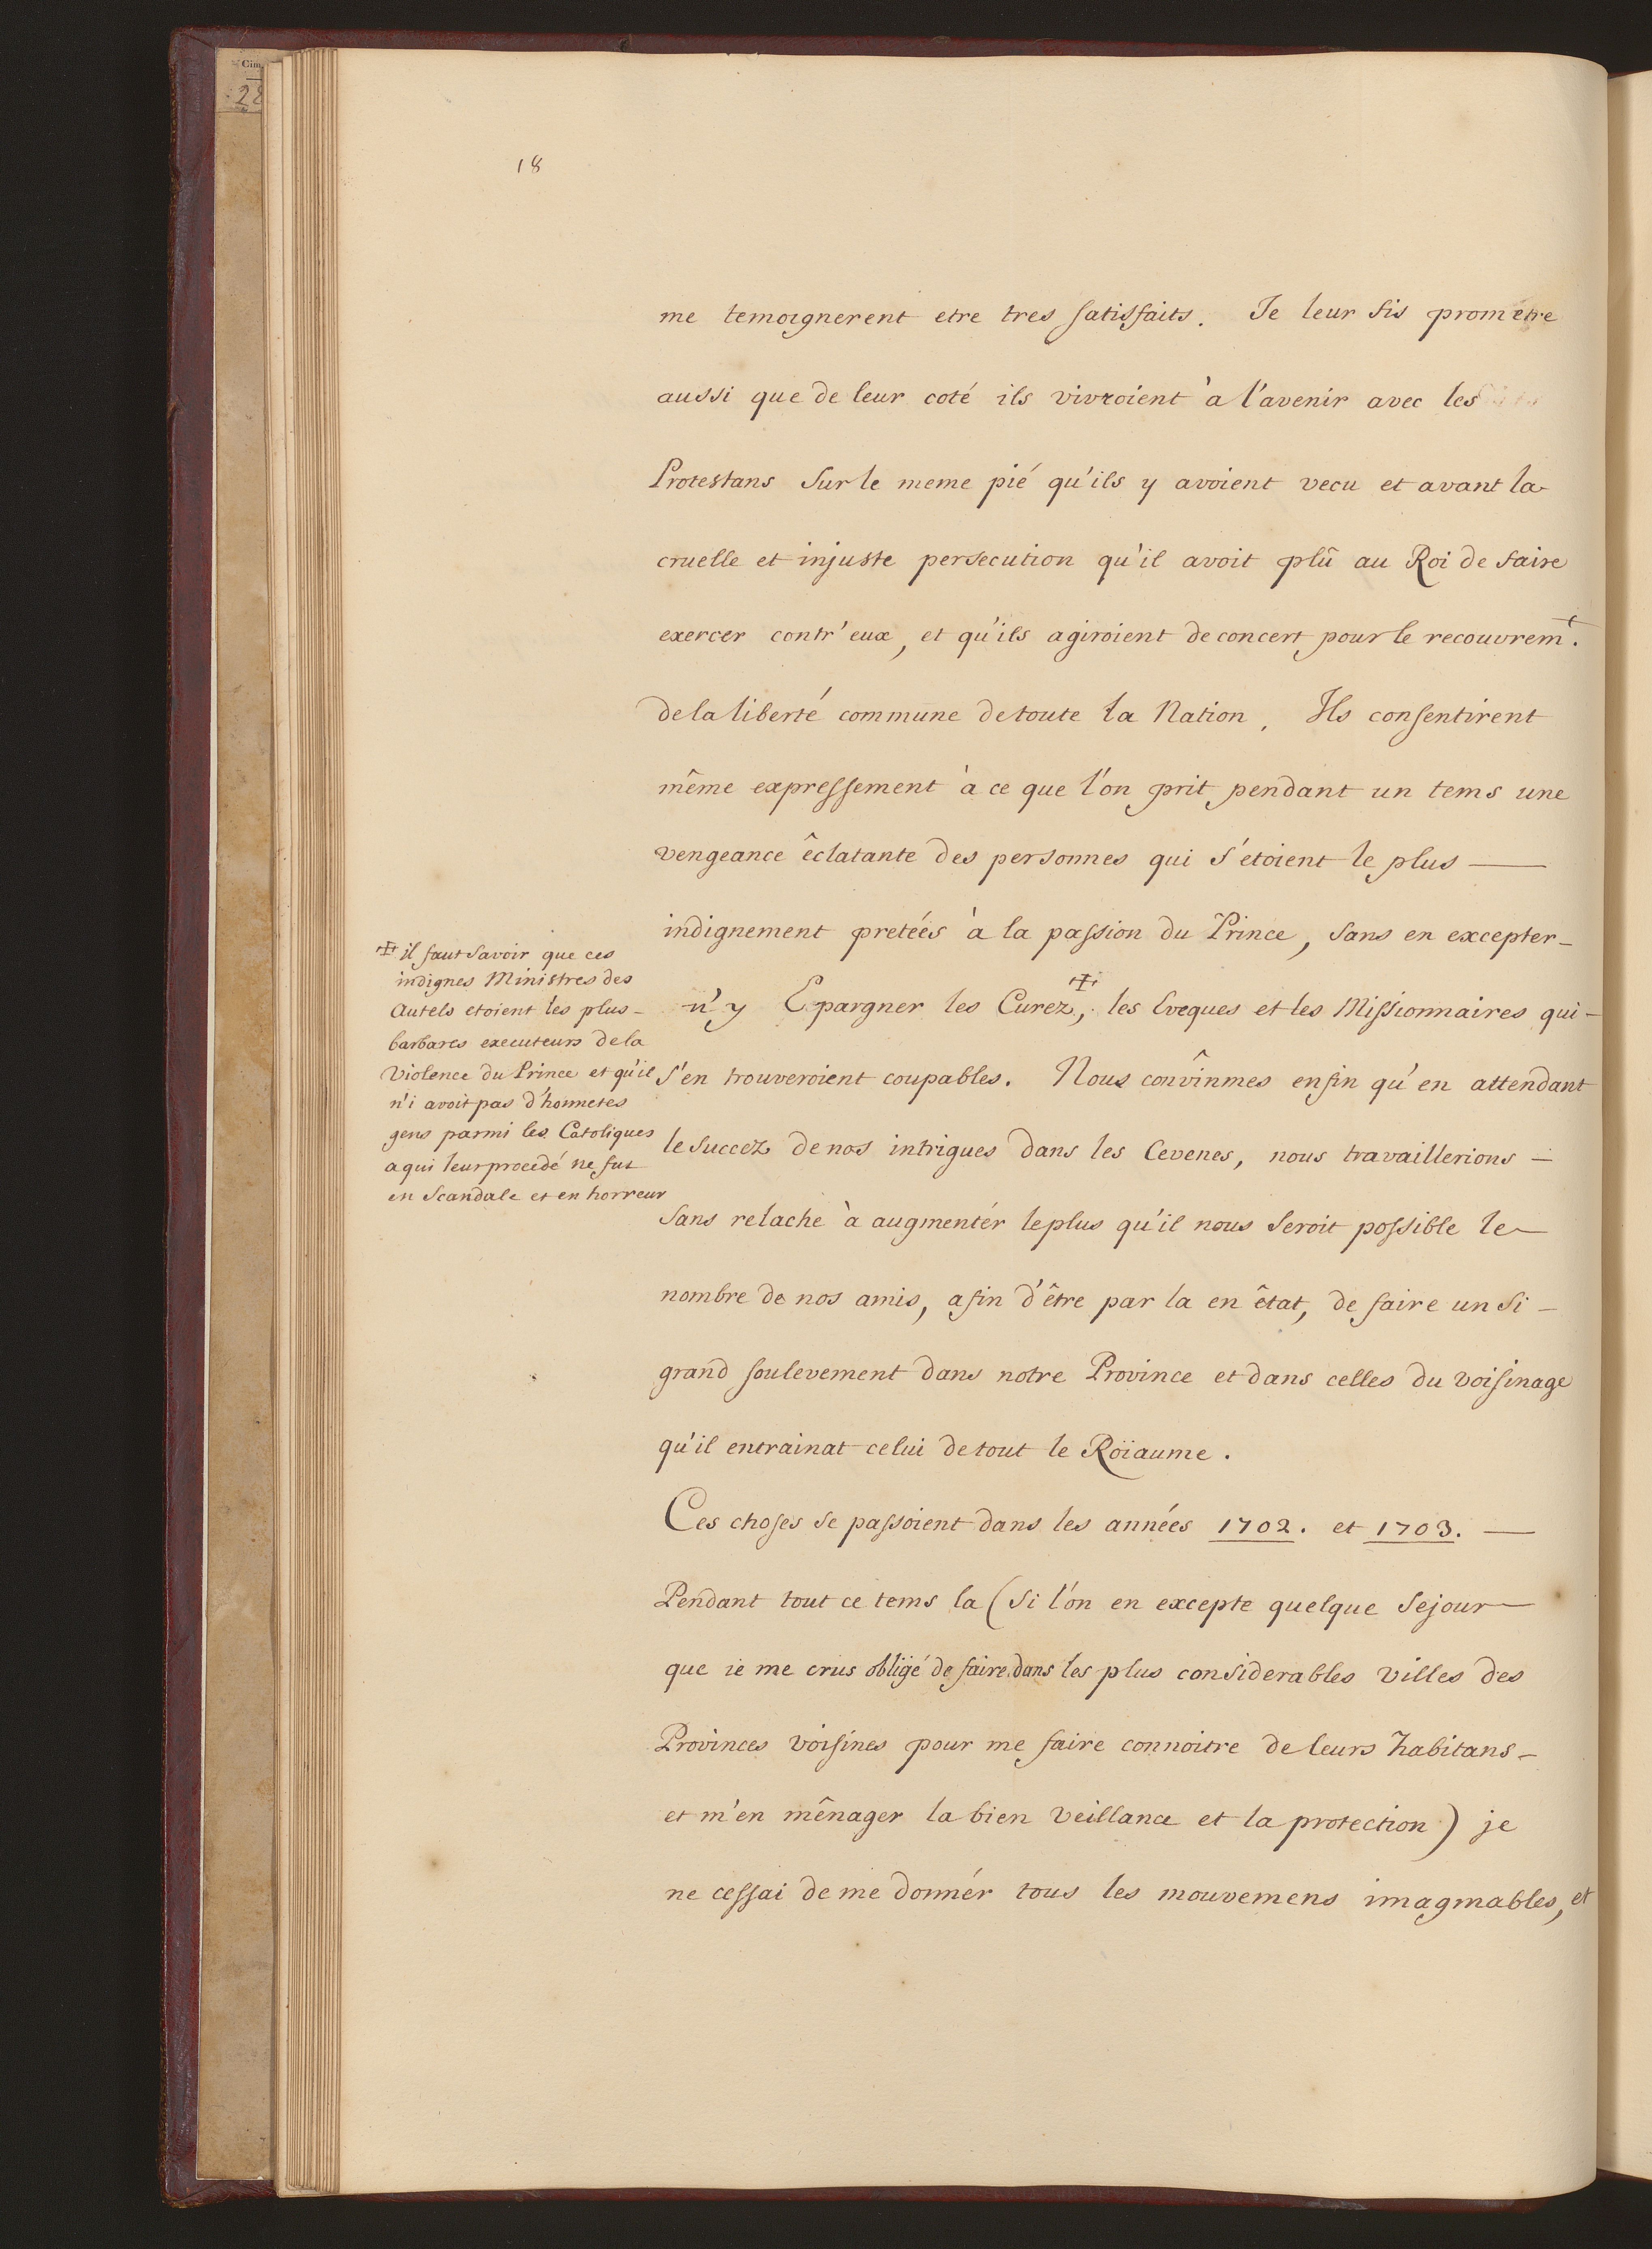 Cim.
28
18
me temoignerent etre tres satisfaits. Je leur fis prometre
aussi que de leur coté ils vivroient à l'avenir avec les
Protestans sur le meme pié qu'ils y avoient vecu et avant la
cruelle et injuste persecution qu'il avoit plû au Roi de faire
exercer contr'eux, et qu'ils agiroient de concert pour le recouvrem.t
de la liberté commune de toute la Nation. Ils consentirent
même expressement à ce que l'on prit pendant un tems une
vengeance êclatante des personnes qui s'étoient le plus —
indignement pretéés à la passion du Prince, sans en excepter -
n'y Epargner les Curez ‡, les Eveques et les Missionnaires qui -
s'en trouveroient coupables. Nous convînmes enfin qu'en attendant
le succez de nos intrigues dans les Cevenes, nous travaillerions —
sans relache à augmentér le plus qu'il nous seroit possible le —
nombre de nos amis, afin d'être par la en êtat, de faire un si -
grand soulevement dans notre Province et dans celles du voisinage
qu'il entrainat celui de tout le Röiaume.
‡ il faut savoir que ces
indignes Ministres des
Autels etoient les plus -
barbares executeurs de la
Violence du Prince et qu'il
n'i avoit pas d'honnetes
gens parmi les Catoliques
a qui leur procedé ne fut
en Scandale et en horreur
Ces choses se passoient dans les années 1702. et 1703. —
Pendant tout ce tems la (si l'on en excepte quelque sejour —
que ie me crus obligé de faire dans les plus considerables villes des
Provinces voisines pour me faire connoitre de leurs habitans -
et m'en mênager la bien veillance et la protection) je
ne cessai de me donnér tous les mouvemens imaginables, et